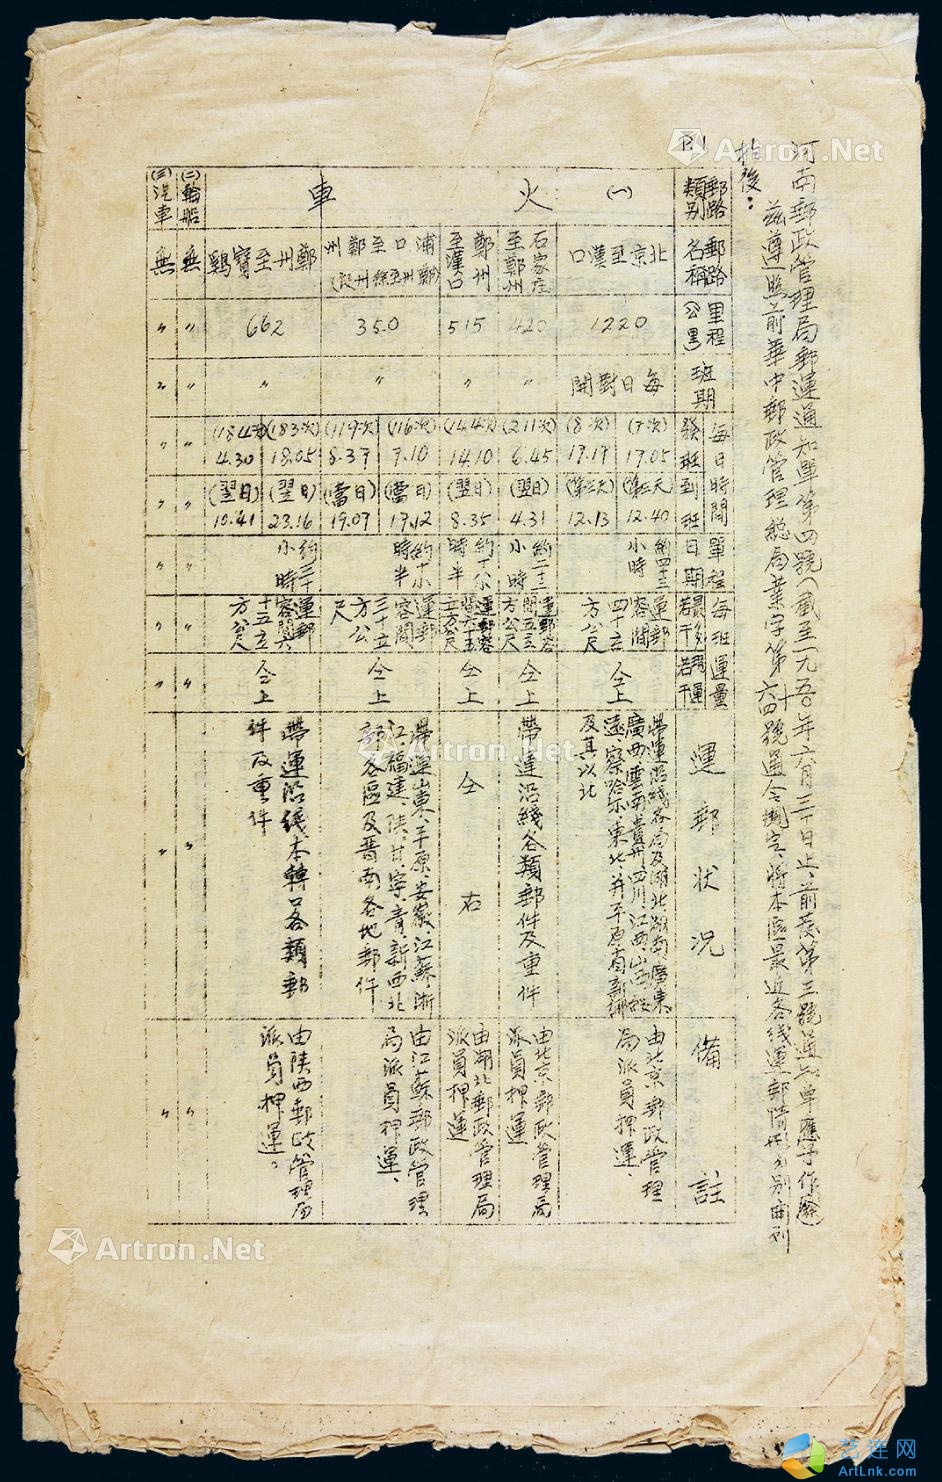 河南郵政管理局郵運通知單第四號(截至一九五〇年六月三十日止、前發第三號通知單應予作廢)
茲遵照前華中郵政管理總局業字第六十四號通令規定、將本區最近各綫運郵情形分別再列
於後:
P.1
郵路類別
郵路名稱
里程(公里)
班期
每日時間
發班
到班
單程日期
每班運量
最多若干
現運若干
運郵狀況
備註
(一)火車
北京至漢口
1220
每日對開
(7次)17.05
(8次)17.17
(第三天)12.40
(第三次)12.13
約四十三小時
運郵容間四十立方公尺
仝上
帶運沿綫各局及湖北湖南、廣東、
廣西、雲南、貴州、四川、江西、山西、綏
遠、察哈尔、東北、并平原省新鄉
及其以北
由北京郵政管理
局派員押運、
石家庄至鄭州
420
〃
(211次)6.45
(翌日)4.31
約二十二小時
運郵容間五立方公尺
仝上
帶運沿綫各類郵件及重件
由北京郵政管理局
派員押運
鄭州至漢口
515
〃
(144次)14.10
(翌日)8.35
約十八小時半
運郵容間六十五立方公尺
仝上
仝右
由湖北郵政管理局
派員押運
浦口至鄭州(徐州至鄭州段)
350
〃
(116次)7.10
(119次)8.37
(當日)17.12
(當日)19.07
約十小時半
運郵容間三十立方公尺
仝上
帶運山東、平原、安徽、江蘇、浙
江、福建、陝、甘、寧、青、新西北
郵各區及晋南各地郵件
由江蘇郵政管理
局派員押運、
鄭州至寶鷄
662
〃
(183次)18.05
(184次)4.30
(翌日)23.16
(翌日)10.41
約三十小時
運郵容間六十五立方公尺
仝上
帶運沿綫本轉口各類郵
件及重件
由陝西郵政管理局
派員押運。
(二)輪船
無
〃
〃
〃
〃
〃
〃
〃
〃
〃
(三)汽車
無
〃
〃
〃
〃
〃
〃
〃
〃
〃
Artron.Net
Artron.Net
Artron.Net
Artron.Net
艺连网
ArtLnk.com